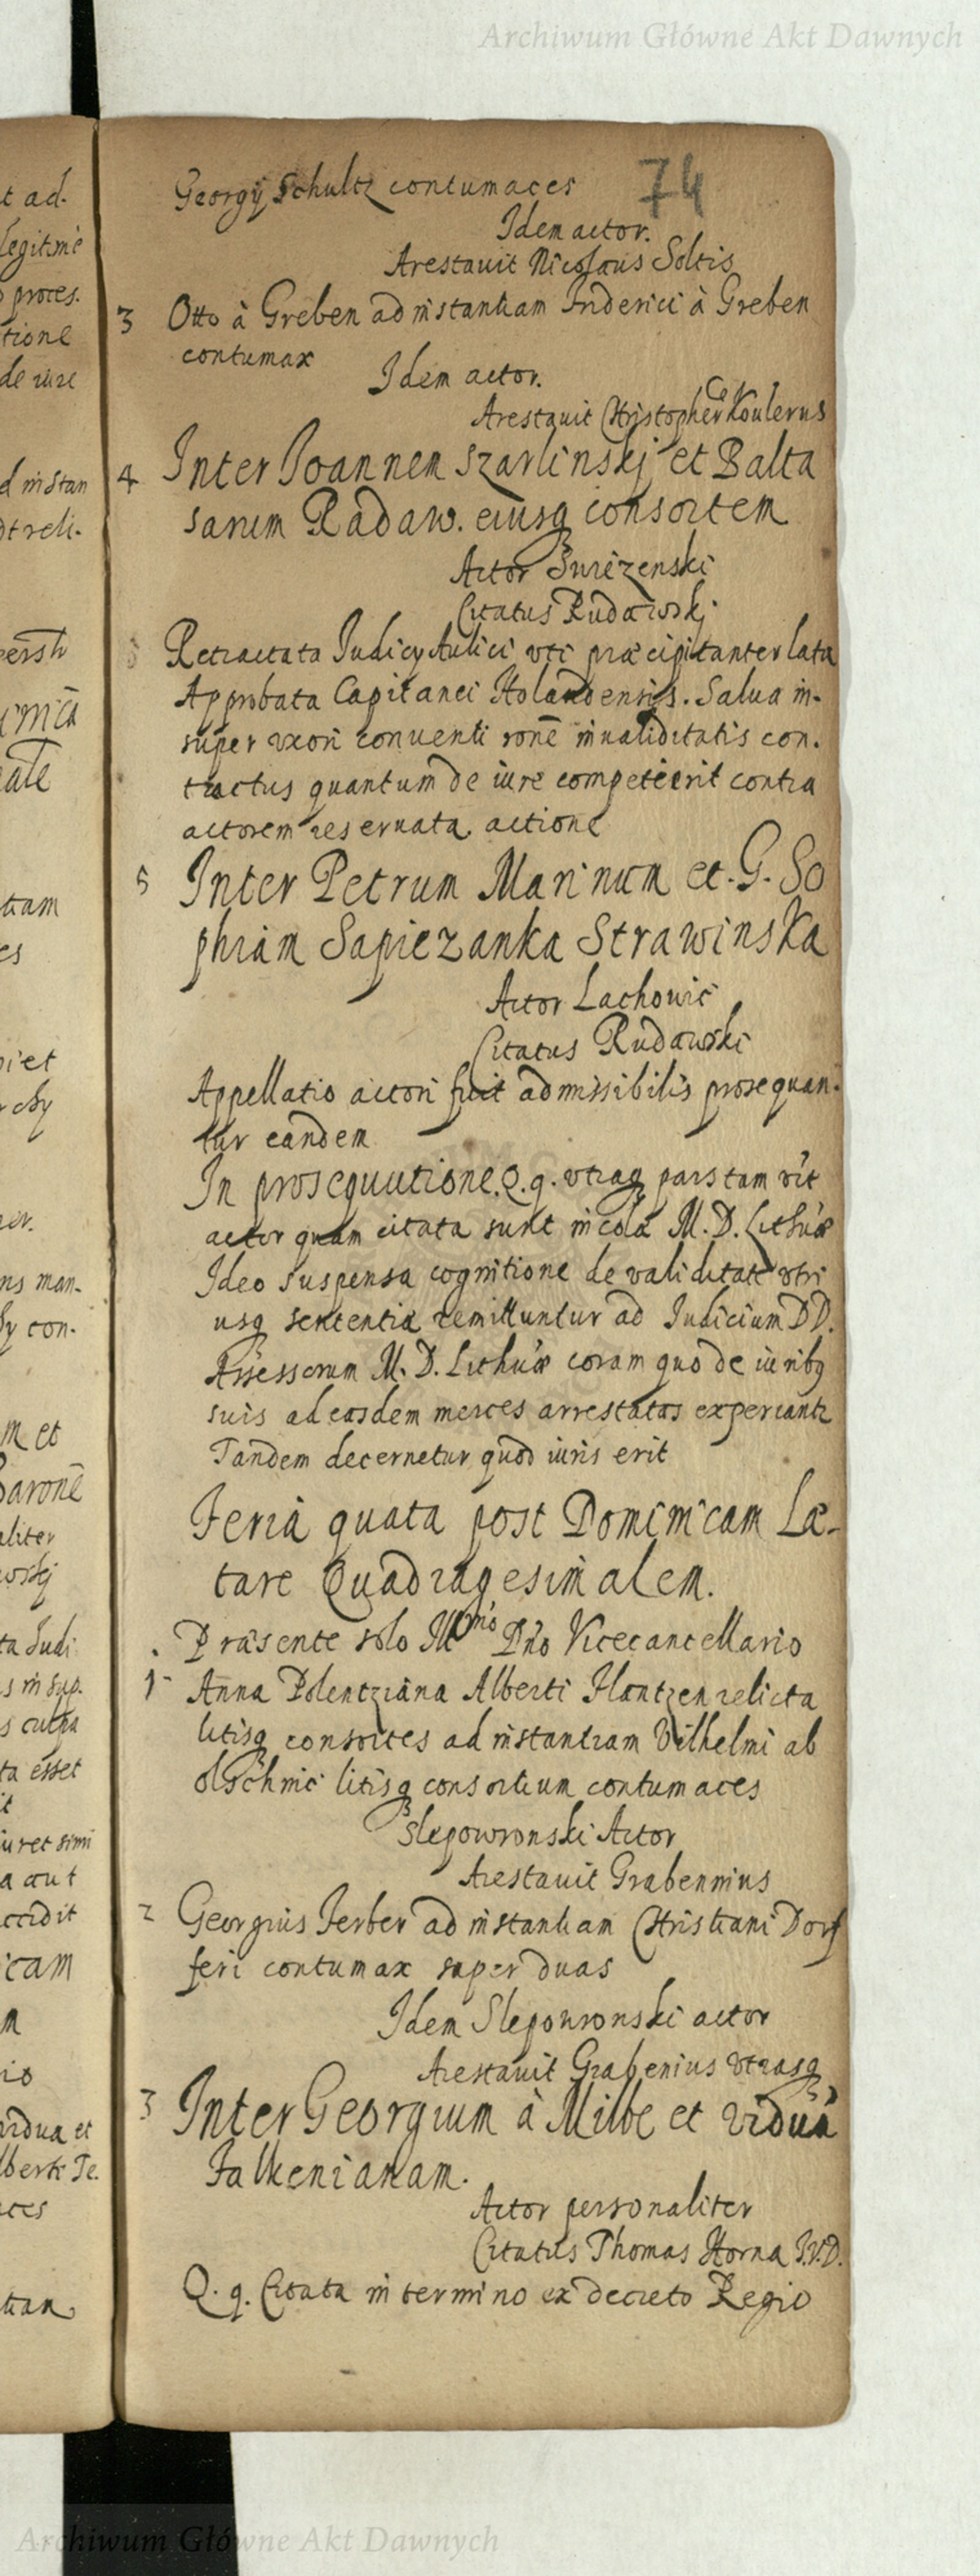 Archiwum Główne Akt Dawnych
74
Georgij Schultz contumaces
Idem actor.
Arestauit Nicolaus Soltis
3 Otto à Greben ad instantiam Friderici à Greben
contumax
Idem actor.
Arestauit Christopher Koulerus
4 Inter Joannem Szarlinskj et Balta
sarum Radaw. eiusq consortem
Actor Swiezenski
Citatus Rudawskj
Retractata Judicij Aulici vti præcipitanter lata
Approbata Capitanei Holandensis. Salua in-
super uxori conuenti ronē inualiditatis con.
tractus quantum de iure competierit contra
actorem reseruata actione
5 Inter Petrum Marinum et. G. So
phiam Sapiezanka Strawinska
Actor Lachouic
Citatus Rudawski
Appellatio actori fuit admissibilis prosequan-
tur eandem
In prosequutione. Q. q. vtraq pars tam vit
actor quam citata sunt incolæ M. D. Lithuæ
Ideo suspensa cognitione de validitate vtri
usq sententiæ remittuntur ad Judicium DD.
Assessorum M. D. Lithuæ coram quo de iuribq
suis ad easdem merces arrestatas experiantr
Tandem decernetur quod iuris erit
Feria quata post Dominicam Læ-
tare Quadragesimalem.
Præsente solo Illmo Dno Vicecancellario
1 Anna Polentziana Alberti Hantzen relicta
litisq consortes ad instantiam Vilhelmi ab
Olschnic litisq consortium contumaces
Slepowronski Actor
Arestauit Grabennius
2 Georgius Ferber ad instantiam Christiani Dorf
feri contumax super duas
Idem Slepowronski actor
Arestauit Grabenius vtrasq
3 Inter Georgium à Milbe et viduā
Falkenianam.
Actor personaliter
Citatus Thomas Horna J.V.D.
Q. q. Citata in termino ex decreto Regio
Archiwum Główne Akt Dawnych